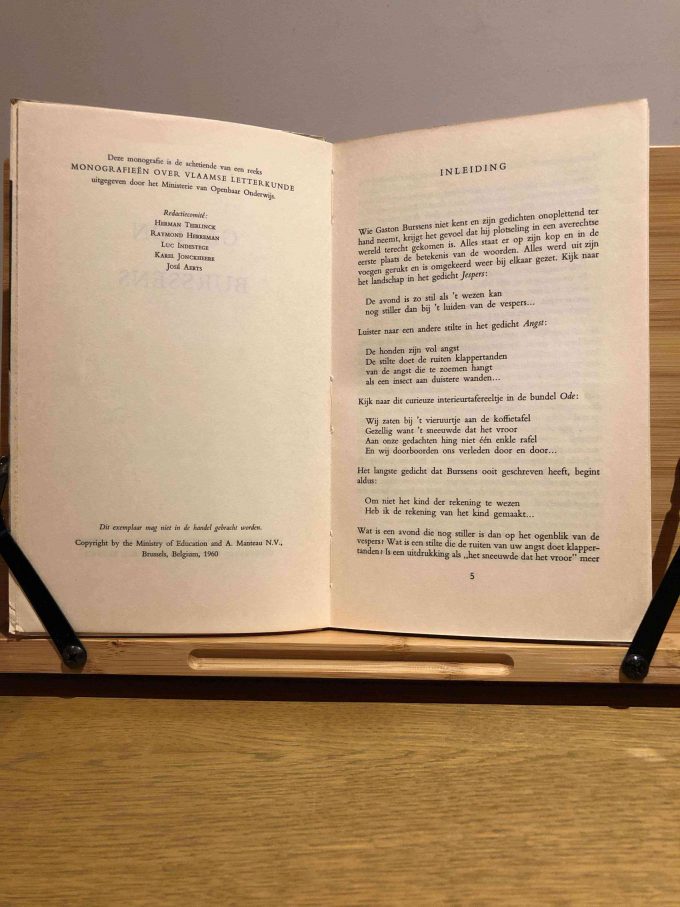 Deze monografie is de achttiende van een reeks
MONOGRAFIEËN OVER VLAAMSE LETTERKUNDE
uitgegeven door het Ministerie van Openbaar Onderwijs.
Redactiecomité:
HERMAN TEIRLINCK
RAYMOND HERREMAN
LUC INDESTEGE
KAREL JONCKHEERE
JOSÉ AERTS
Dit exemplaar mag niet in de handel gebracht worden.
Copyright by the Ministry of Education and A. Manteau N.V.,
Brussels, Belgium, 1960
INLEIDING
Wie Gaston Burssens niet kent en zijn gedichten onoplettend ter
hand neemt, krijgt het gevoel dat hij plotseling in een averechtse
wereld terecht gekomen is. Alles staat er op zijn kop en in de
eerste plaats de betekenis van de woorden. Alles werd uit zijn
voegen gerukt en is omgekeerd weer bij elkaar gezet. Kijk naar
het landschap in het gedicht Jespers:
De avond is zo stil als 't wezen kan
nog stiller dan bij 't luiden van de vespers...
Luister naar een andere stilte in het gedicht Angst:
De honden zijn vol angst
De stilte doet de ruiten klappertanden
van de angst die te zoemen hangt
als een insect aan duistere wanden...
Kijk naar dit curieuze interieurtafereeltje in de bundel Ode:
Wij zaten bij 't vieruurtje aan de koffietafel
Gezellig want 't sneeuwde dat het vroor
Aan onze gedachten hing niet één enkle rafel
En wij doorboorden ons verleden door en door...
Het langste gedicht dat Burssens ooit geschreven heeft, begint
aldus:
Om niet het kind der rekening te wezen
Heb ik de rekening van het kind gemaakt...
Wat is een avond die nog stiller is dan op het ogenblik van de
vespers? Wat is een stilte die de ruiten van uw angst doet klapper-
tanden? Is een uitdrukking als „het sneeuwde dat het vroor" meer
5